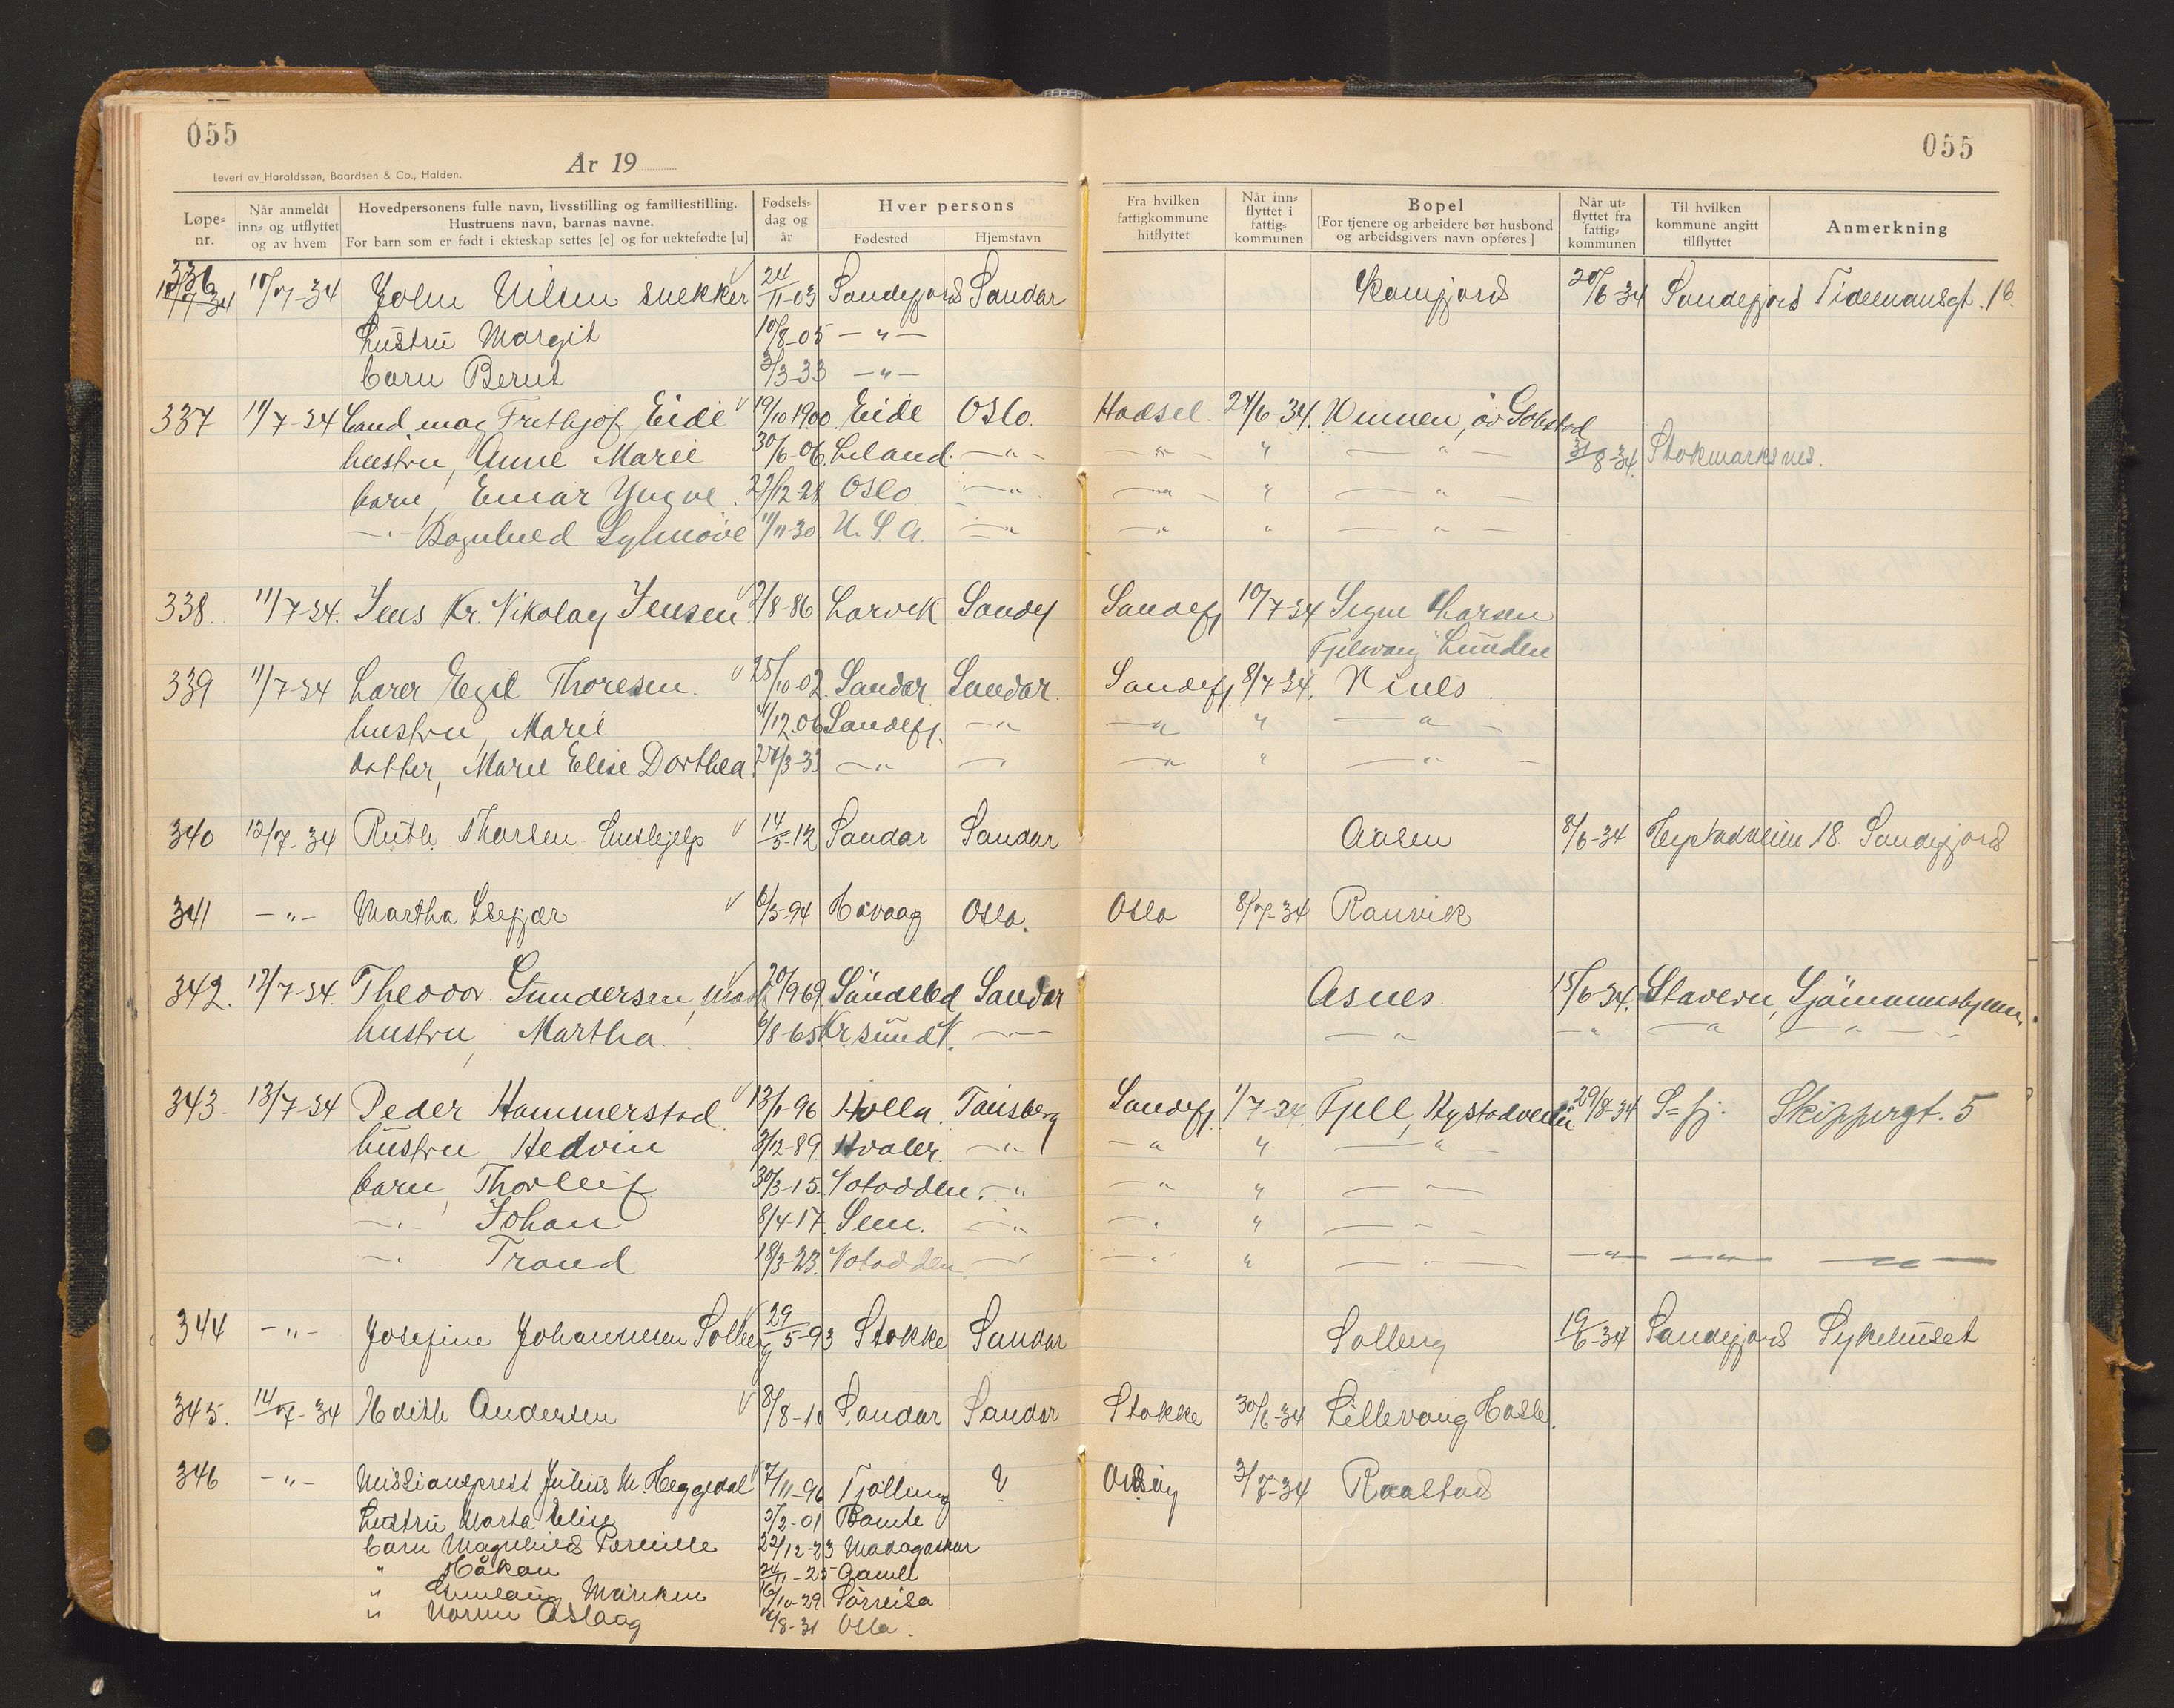 055
055
År 19
Levert av Haraldssøn, Baardsen & Co., Halden.
Løpe-nr. Når anmeldt inn- og utflyttet og av hvem Hovedpersonens fulle navn, livsstilling og familiestilling. Hustruens navn, barnas navne. For barn som er født i ekteskap settes [e] og for uektefødte [u] Fødsels-dag og år Hver persons Fødested Hjemstavn Fra hvilken fattigkommune hitflyttet Når inn-flyttet i fattig-kommunen Bopel [For tjenere og arbeidere bør husbond og arbeidsgivers navn opføres] Når ut-flyttet fra fattig-kommunen Til hvilken kommune angitt tilflyttet Anmerkning
336 10/7-34 John Nilsen snekker 24/11-03 Sandefjord Sandar Kamfjord 20/6-34 Sandefjord Tidemansgt. 18.
12/7-34
hustru Margit 10/8-05 -"-
barn Bernt 3/3-33 -"-
337 11/7-34 Cand. mag Frithjof Eide 19/10 1900. Eide Oslo. Hadsel. 24/6-34. Unneberg
hustru, Anne Marie 30/6-06. Leland -"- -"- " -"- 31/8-34. Stokmarksnes.
barn, Einar Yngve 27/12-28 Oslo -"- -"- " -"-
-"- Ragnhild Sylnøve 11/11-30 U.S.A. -"- -"- " -"-
338. 11/7-34. Jens Kr. Nikolay Jensen 2/8-86 Larvik Sandef Sandefj 10/7-34 Signe Thorsen
Fjellvang Lunden
339 11/7-34 Lærer Egil Thoresen. 25/10-02. Sandar Sandar. Sandefj. 8/7-34. Vines
hustru, Marie 4/12.06 Sandefj. -" -" " -"-
datter, Marie Elise Dorthea 27/3-33 -"- -" -" " -"-
340 12/7-34 Ruth Thorsen hushjelp 14/5-12 Sandar Sandar Aasen 8/6-34 Hystadveien 18. Sandefjord
341 -"- Martha Isefjær 6/5-94 Høvaag Oslo. Oslo 8/7-34 Ranvik
342. 12/7-34. Theodor Gundersen, 20/1969 Søndeled Sandar Asnes. 15/6-34. Stavern, Sjömannshjem.
hustru, Martha. 6/8-65 Kr.sund N. -"- -"- -"- -"- -"-
343. 13/7-34 Peder Hammerstad 13/1-96 Holla. Tønsberg Sandefj. 1/7-34 Fjell, Hystadveien 29/8-34 S-fj. Skippergt. 5
hustru Hedvin 3/12-89. Hvaler. -"- -"- " -"-
barn, Thorleif 30/3-15. Notodden. -"- -"- " -"-
-"- Johan 8/4-17. Sem. -"- -"- " -"-
-"- Trond 18/3-23. Notodden. -"- -"- " -"- -"- -"- -"-
344 -"- Josefine Johannesen Solberg 29/5-93 Stokke Sandar Solberg 19/6-34 Sandefjord Sykehuset
345. 14/7-34 Edith Andersen 8/8-10 Sandar Sandar Stokke 30/6-34 Lillevang Hasle.
346 -"- Misjonsprest Julius M. Heggedal 7/11-96 Tjølling ? 3/7-34 Raastad
hustru Marta Elise 5/2-01 Bamle
barn Magnhild Pernille 22/12-23 Madagaskar
" Håkon 24/11-25 Bamle
" 16/10-29 Sørreisa
" Aslaug /8-31 Oslo.